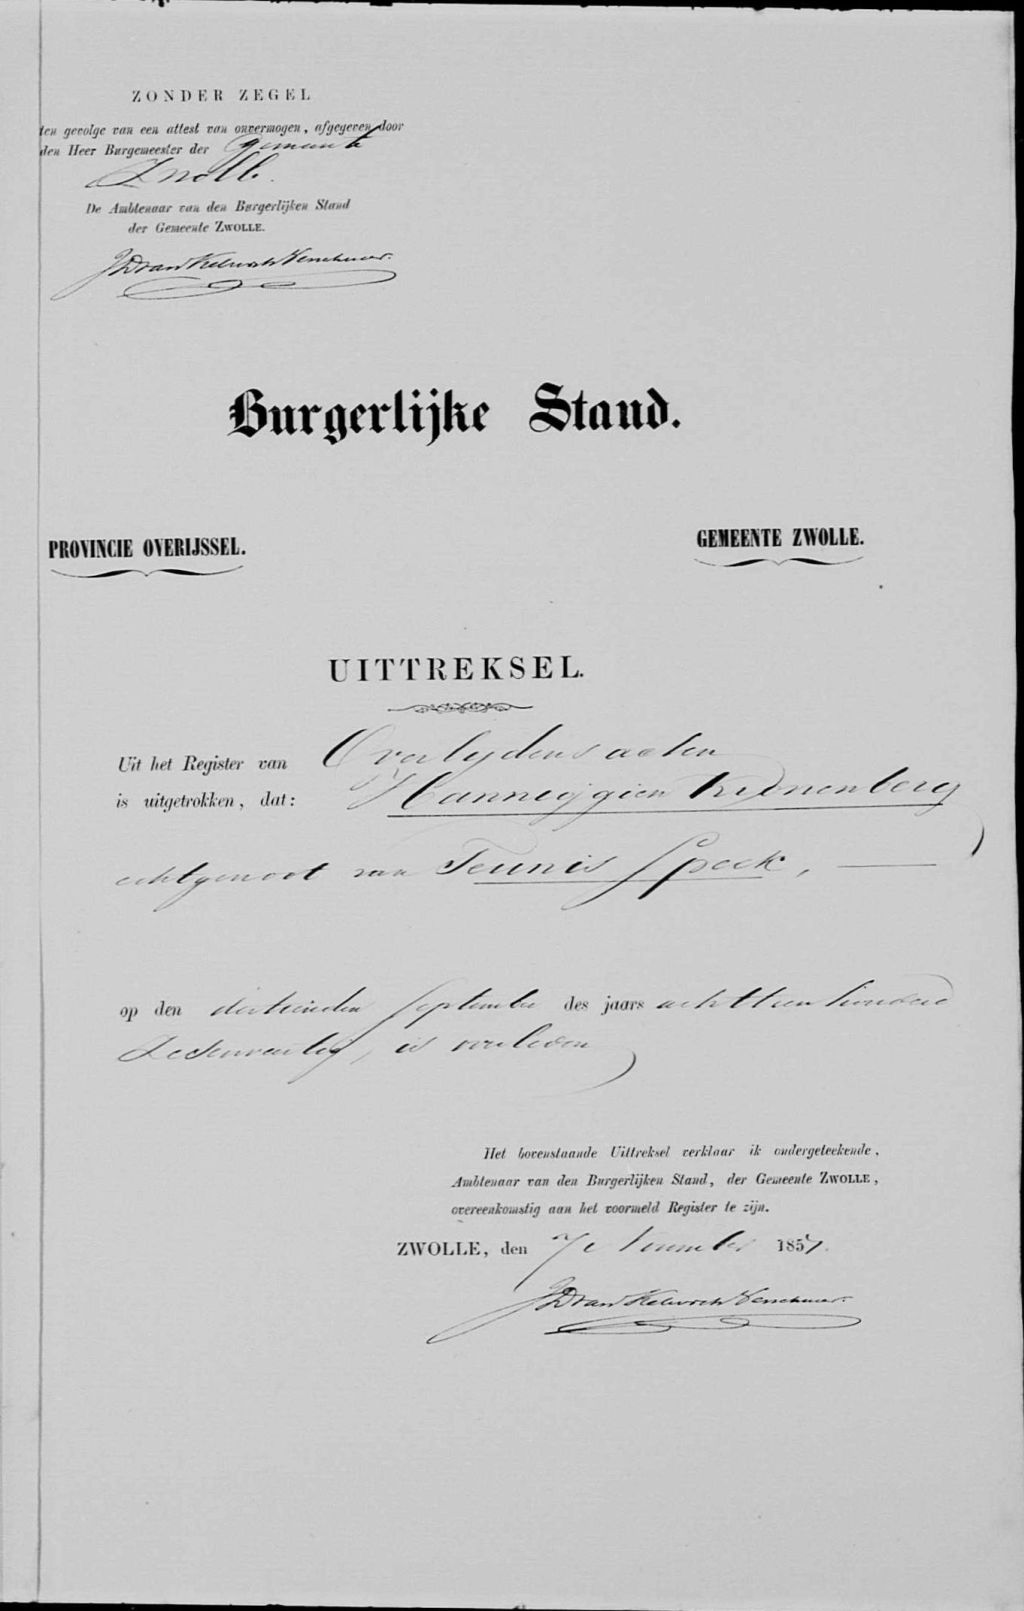 ZONDER ZEGEL
ten gevolge van een attest van onvermogen, afgegeven door
den Heer Burgemeester der Gemeente
Zwolle.
De Ambtenaar van den Burgerlijken Stand
der Gemeente ZWOLLE.
Burgerlijke Stand.
PROVINCIE OVERIJSSEL.
GEMEENTE ZWOLLE.
UITTREKSEL.
Uit het Register van Overlydens acten
is uitgetrokken, dat: Hannegjgien Kronenberg
echtgenoot van Teunis Speek,
op den dertienden September des jaars achttien honderd
is overleden
Het bovenstaande Uittreksel verklaar ik ondergeteekende,
Ambtenaar van den Burgerlijken Stand, der Gemeente ZWOLLE,
overeenkomstig aan het voormeld Register te zijn.
ZWOLLE, den 7e November 1857.